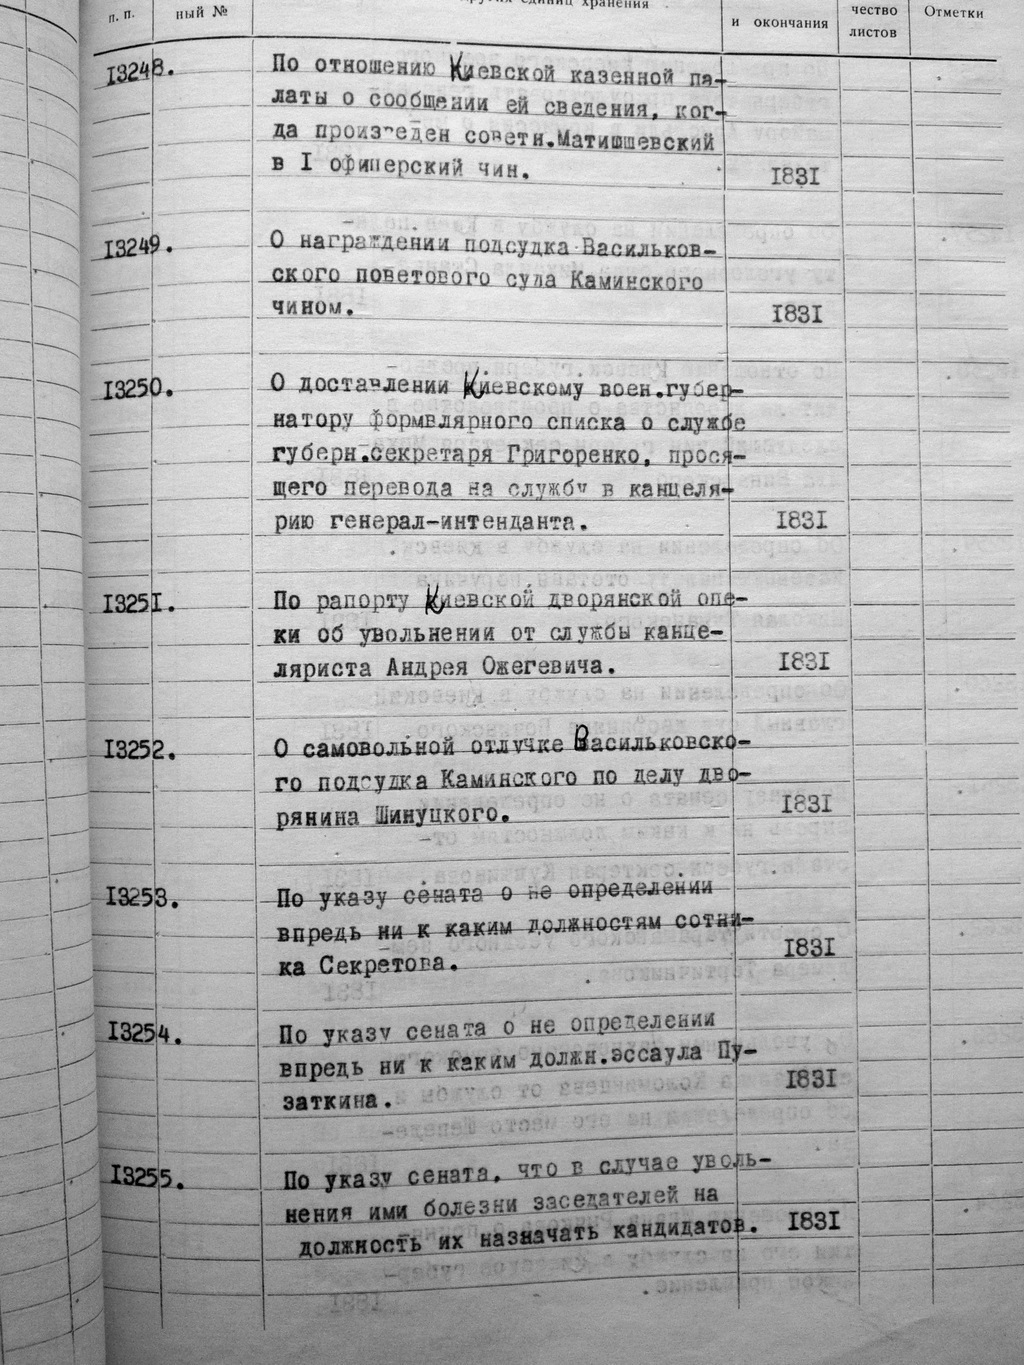 п. п.
ный №
других единиц хранения
и окончания
чество
листов
Отметки
13248.
По отношению Киевской казенной па-
латы о сообщении ей сведения, ког-
да произведен советн.Матишшевский
в I офицерский чин.
1831
13249.
О награждении подсудка Васильков-
ского поветового суда Каминского
чином.
1831
13250.
О доставлении Киевскому воен.губер-
натору формвлярного списка о службе
губерн.секретаря Григоренко, прося-
щего перевода на службу в канцеля-
рию генерал-интенданта.
1831
13251.
По рапорту Киевской дворянской опе-
ки об увольнении от службы канце-
ляриста Андрея Ожегевича.
1831
13252.
О самовольной отлучке Васильковско-
го подсудка Каминского по делу дво-
рянина Шинуцкого.
1831
13253.
По указу сената о не определении
впредь ни к каким должностям сотни-
ка Секретова.
1831
13254.
По указу сената о не определении
впредь ни к каким должн.эссаула Пу-
заткина.
1831
13255.
По указу сената, что в случае уволь-
нения ими болезни заседателей на
должность их назначать кандидатов.
1831